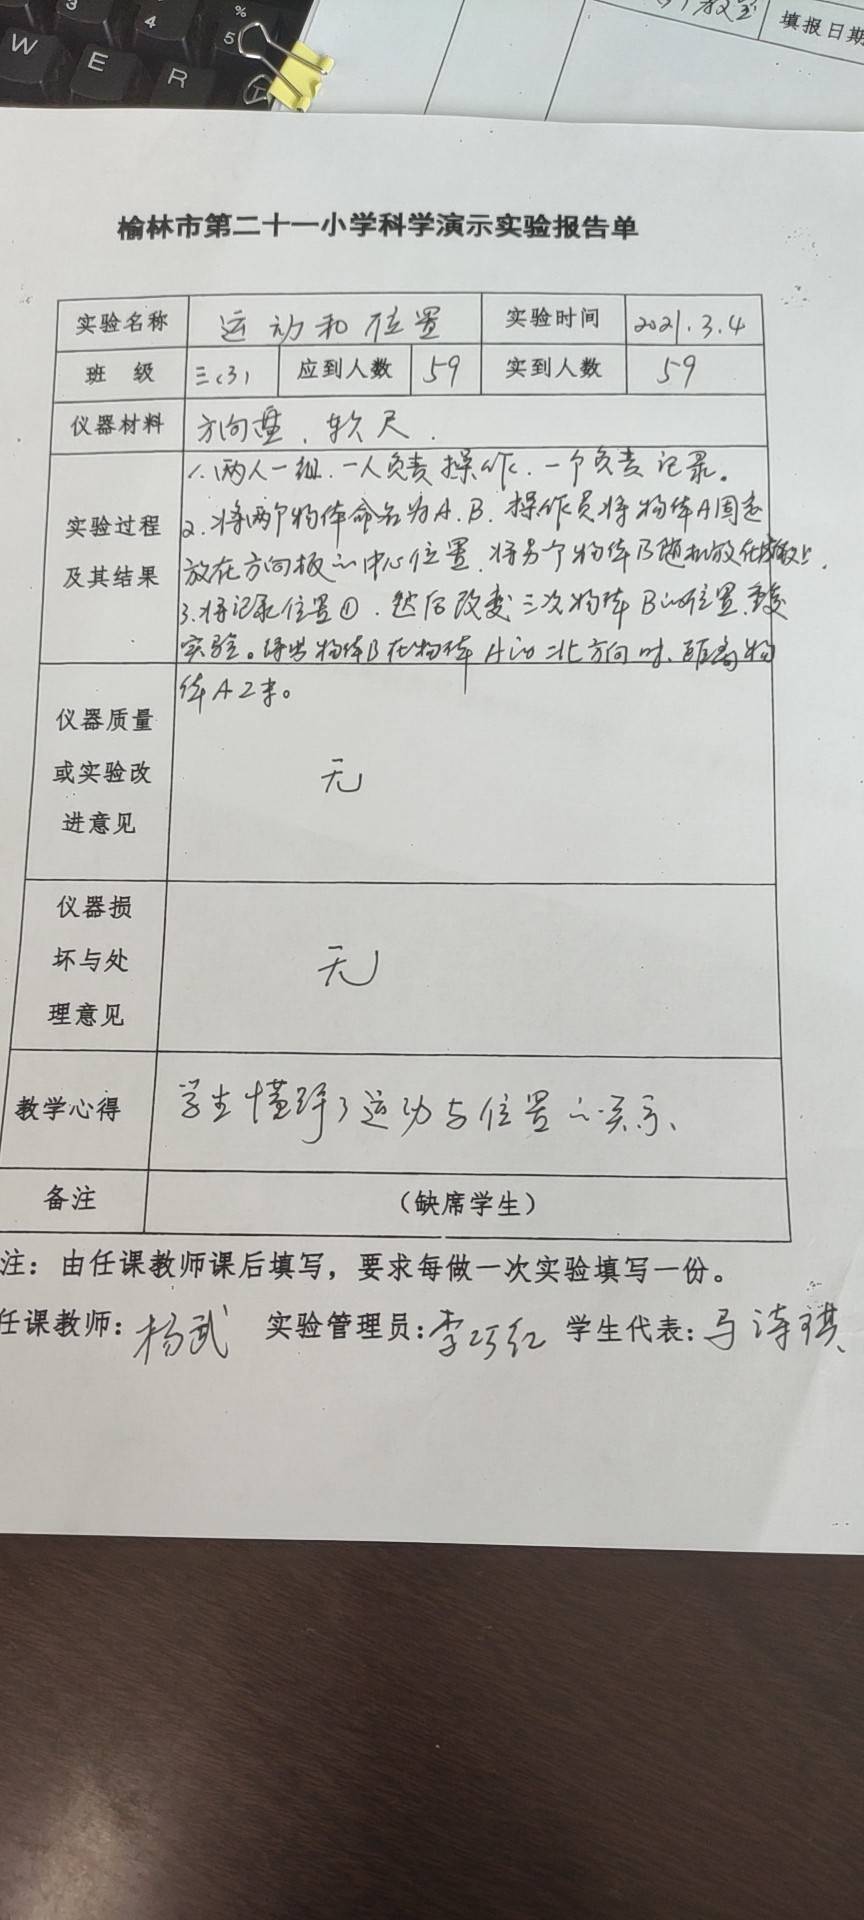 W
E
R
3
4
%
5
填报日期
榆林市第二十一小学科学演示实验报告单
实验名称 运动和位置 实验时间 2021.3.4
班 级 三(3) 应到人数 59 实到人数 59
仪器材料 方向盘、软尺.
实验过程及其结果
1.两人一组.一人负责操作.一个负责记录。
2.将两个物体命名为A.B.操作员将物体A固定
放在方向板的中心位置.将另个物体B随机放在
3.将记录位置①.然后改变三次物体B的位置.重复
实验。得出物体B在物体A的北方向时、距离物
体A2米。
仪器质量
或实验改
进意见
无
仪器损
坏与处
理意见
无
教学心得 学生懂得了运动与位置的关系、
备注 (缺席学生)
注：由任课教师课后填写，要求每做一次实验填写一份。
任课教师：杨武 实验管理员：李巧红 学生代表：马诗琪